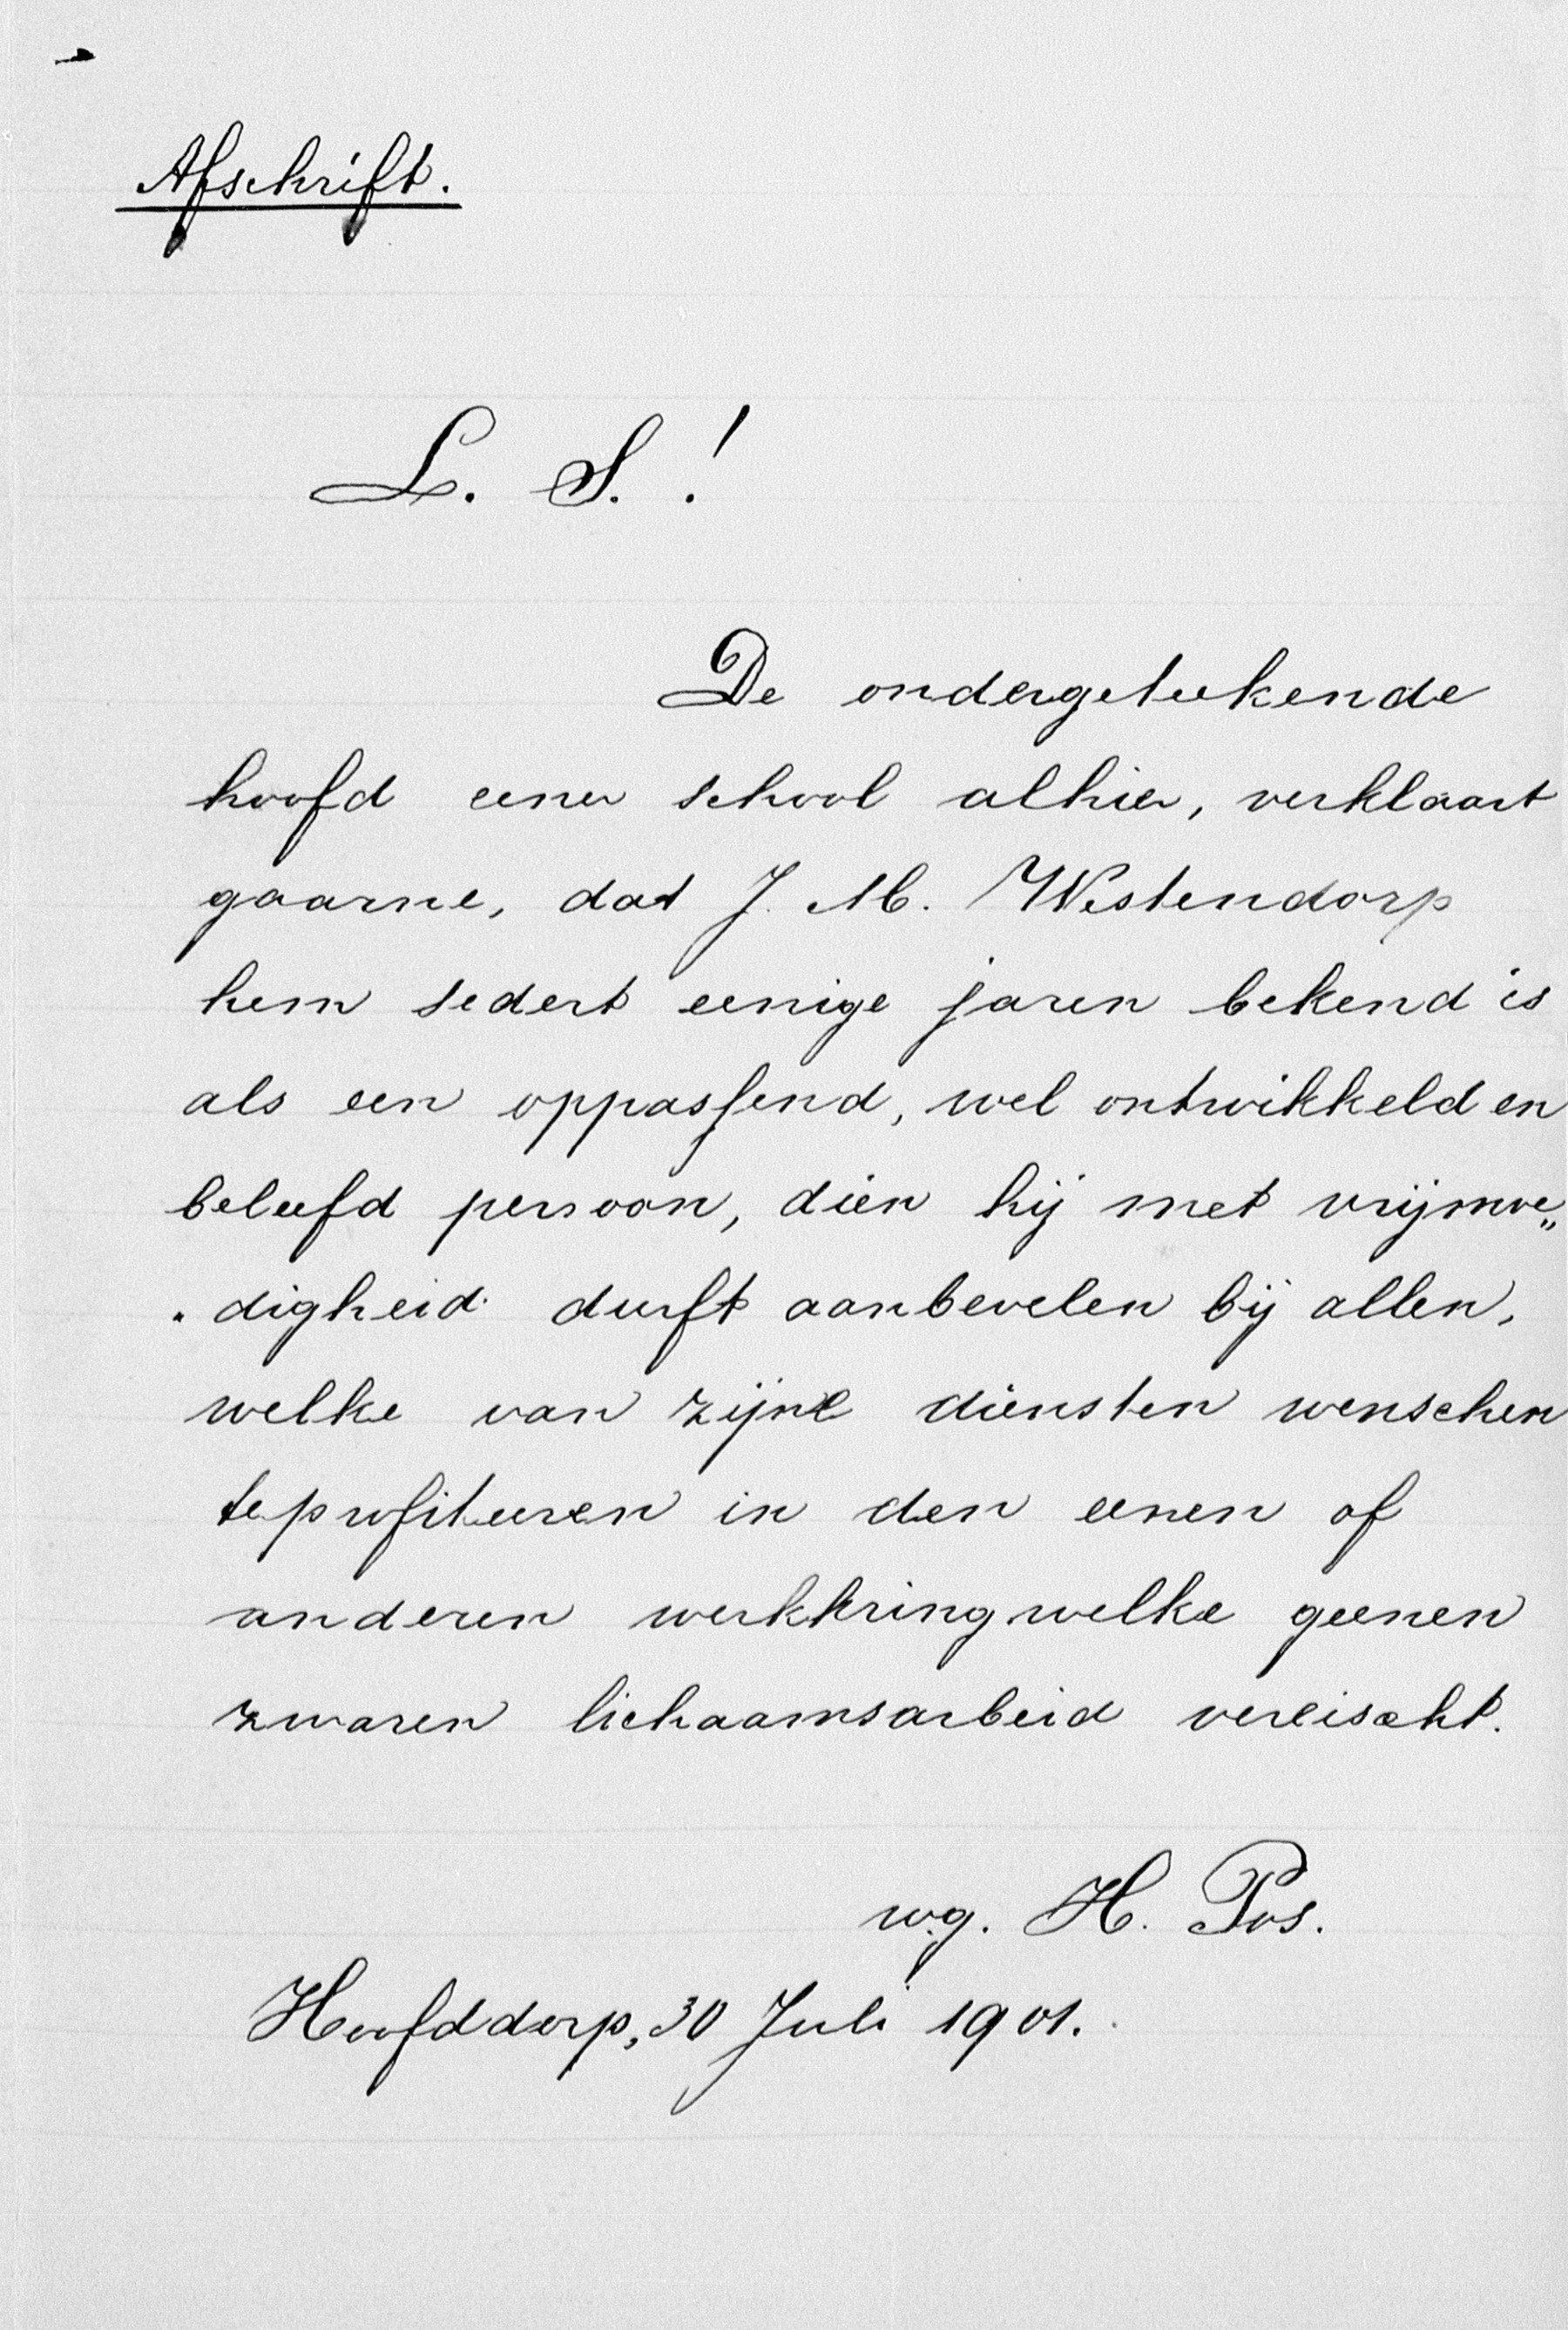 Afschrift.
L. S. !
De ondergeteekende
hoofd eener school alhier, verklaart
gaarne, dat J. M. Westendorp
hem sedert eenige jaren bekend is
als een oppassend, wel ontwikkeld en
beleefd persoon, dien hij met vrijmoe„
„digheid durft aanbevelen bij allen,
welke van zijne diensten wenschen
te profiteeren in den eenen of
anderen werkkring welke geenen
zwaren lichaamsarbeid vereischt.
w.g. H. Pos.
Hoofddorp, 30 Juli 1901.